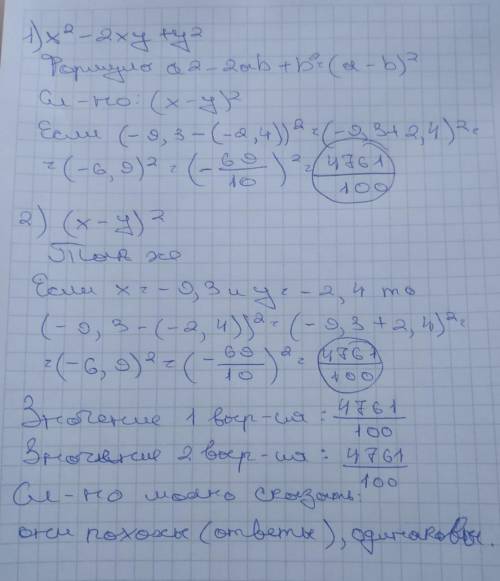 1) x² - 2xy + y²
Формула a2 - 2ab + b² = (a - b)²
Сл-но: (x - y)²
Если (-9,3 - (-2,4))² = (-9,3 + 2,4)² =
= (-6,9)² = (-69/10)² = 4761/100
2) (x - y)²
Так же
Если x = -9,3 и y = -2,4 то
(-9,3 - (-2,4))² = (-9,3 + 2,4)² =
= (-6,9)² = (-69/10)² = 4761/100
Значение 1 выр-ия: 4761/100
Значение 2 выр-ия: 4761/100
Сл-но можно сказать:
они похожы (ответы), одинаковы.